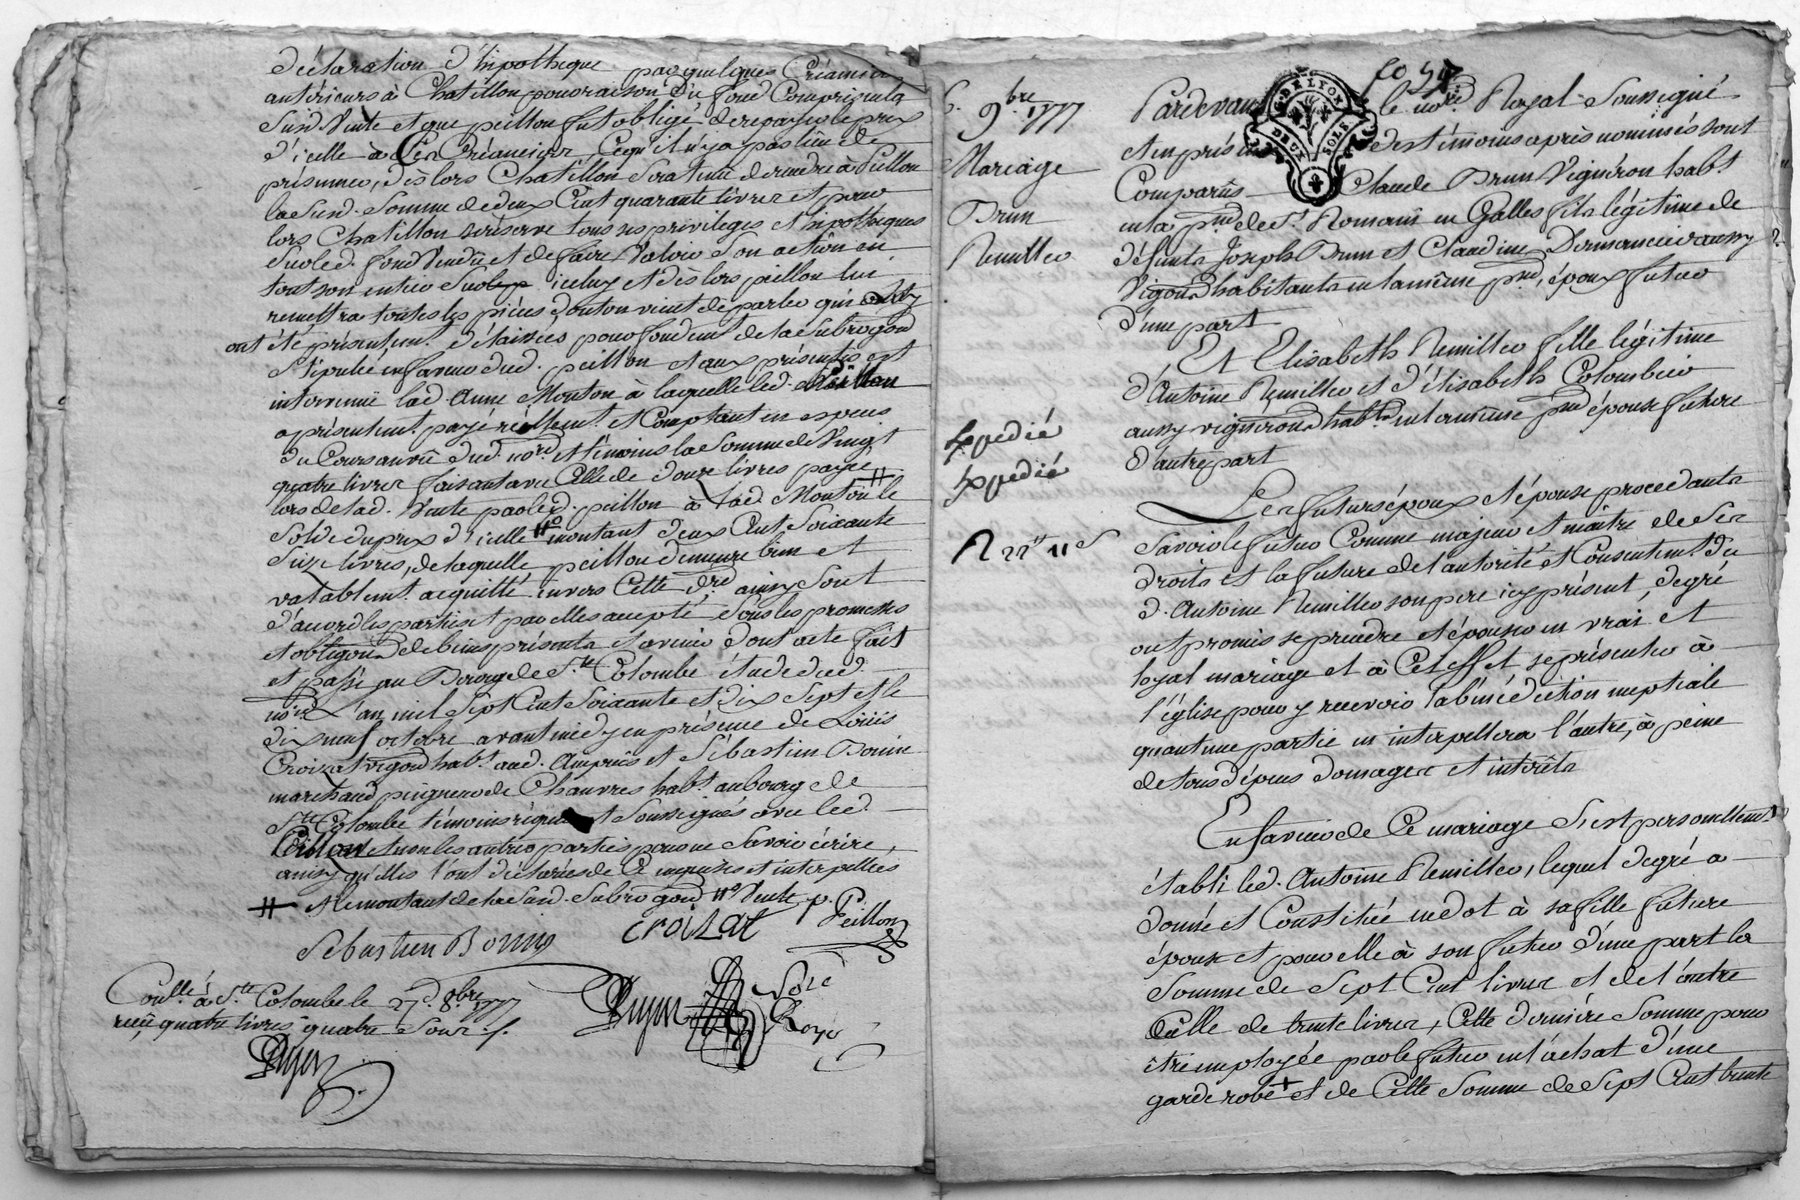 déclaration d'hipotheque par quelques Créanciers
antérieurs à Chatillon pour raison du fond Compris en la
Susd. Vente et que peillon fut obligé de repayer le prix
d'icelle à Ces Créanciers Ce qu'il n'y a pas lieu de
présumer, dès lors Chatillon sera tenu de rendre à Peillon
la Susd. Somme de deux Cent quarante livres et pour
lors Chatillon se réserve tous ses privileges et hipotheques
Sur led. fond Vendu et de faire Valoir Son action en
tout son entier Sur icelui et dès lors peillon lui
remettra toutes les pièces dont on vient de parler qui
ont été présentemt. délaissées pour fondemt. de la Subrogaon
Stipulée en faveur dud. peillon et aux présentes est
intervenue lad. Anne Mouton à laquelle led. Peillon
a présentemt. payé réellemt. et Comptant en espèces
du Cours au vû dud. nore. et témoins la Somme de Vingt
quatre livres faisant avec Celle de douze livres payée
lors de lad. Vente par led. peillon à lad. Mouton le
Solde du prix d'icelle montant deux Cent Soixante
Seize livres, de laquelle peillon demeure bien et
valablemt. acquitté envers Cette dre. ainsy Sont
d'accord les parties et par elles accepté, Sous les promesses
et obligaons de biens présents et avenir dont acte fait
et passé au Bourg de Ste. Colombe étude dud.
nore L'an mil Sept Cent Soixante et dix Sept et le
dix neuf octobre avant midy en présence de Louis
Croizat vigon habt. aud. Ampuis et Sébastien Bonin
marchand peigneur de Chanvres habt. au bourg de
Ste. Colombe témoins requis et Soussignés avec led.
Peillon et non les autres parties pour ne Savoir écrire
ainsy qu'elles l'ont déclaré de Ce enquises et interpellées
# et le montant de la Susd. Subrogaon # Vente
p. Peillon
Croizat
Sebastien Bonin
Conllé. à Ste. Colombe le 27. 8.bre 1777
reçu quatre livres quatre Sous
6. 9.bre 1777
Mariage
Brun
Remiller
Expedié
Expedié
Pardevant le nore Royal Soussigné
et en présence des témoins après nommés sont
Comparus Claude Brun Vigneron habt.
en la pse. de St. Romain en Galles fils légitime de
défunts Joseph Brun et Claudine Dumancieu aussy
Vigons habitants en la même pse., époux futur
d'une part
Et Elisabeth Remiller fille légitime
d'Antoine Remiller et d'élisabeth Colombier
aussy vignerons habts. en la même pse épouse future
d'autre part
Les futurs époux et épouse procedants
Savoir le futur Comme majeur et maitre de Ses
droits et la future de l'autorité et Consentemt. du
d. Antoine Remiller son pere icy présent, de gré
ont promis se prendre et épouser en vrai et
loyal mariage et à Cet effet se présenter à
l'église pour y recevoir la bénédiction nuptiale
quant une partie en interpellera l'autre, à peine
de tous dépens domages et intérêts
En faveur de Ce mariage S'est personellemt.
établi led. Antoine Remiller, lequel de gré a
donné et Constitué en dot à sa fille future
épouse et pour elle à son futur d'une part la
Somme de Sept Cent livres et de l'autre
Celle de trente livres, Cette dernière Somme pour
être employée par le futur en l'achat d'une
garderobe + et de Cette Somme de Sept Cent trente
G. DE LYON
DEUX SOLS